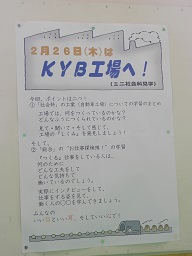 2月26日(木)は
KYB工場へ!
(ミニ社会科見学)
今回、ポイントは二つ!
①「社会科」の工業(自動車工場)についての学習のまとめ
工場では、何をつくっているのかな?
どんなふうにつくられているのかな?
見て・聞いて・そして感じて、
工場の「しくみ」を発見しましょう!
そして、
②「総合」の「お仕事探検隊!」の学習
「つくる」仕事をしている人は、
何のために
どんな工夫をして
どんな気持ちで
働いているのでしょう。
実際にインタビューをして、
仕事をする姿を見て、
働く人の
を学んできましょう!
みんなの
いい
いい
、そしていい
で!